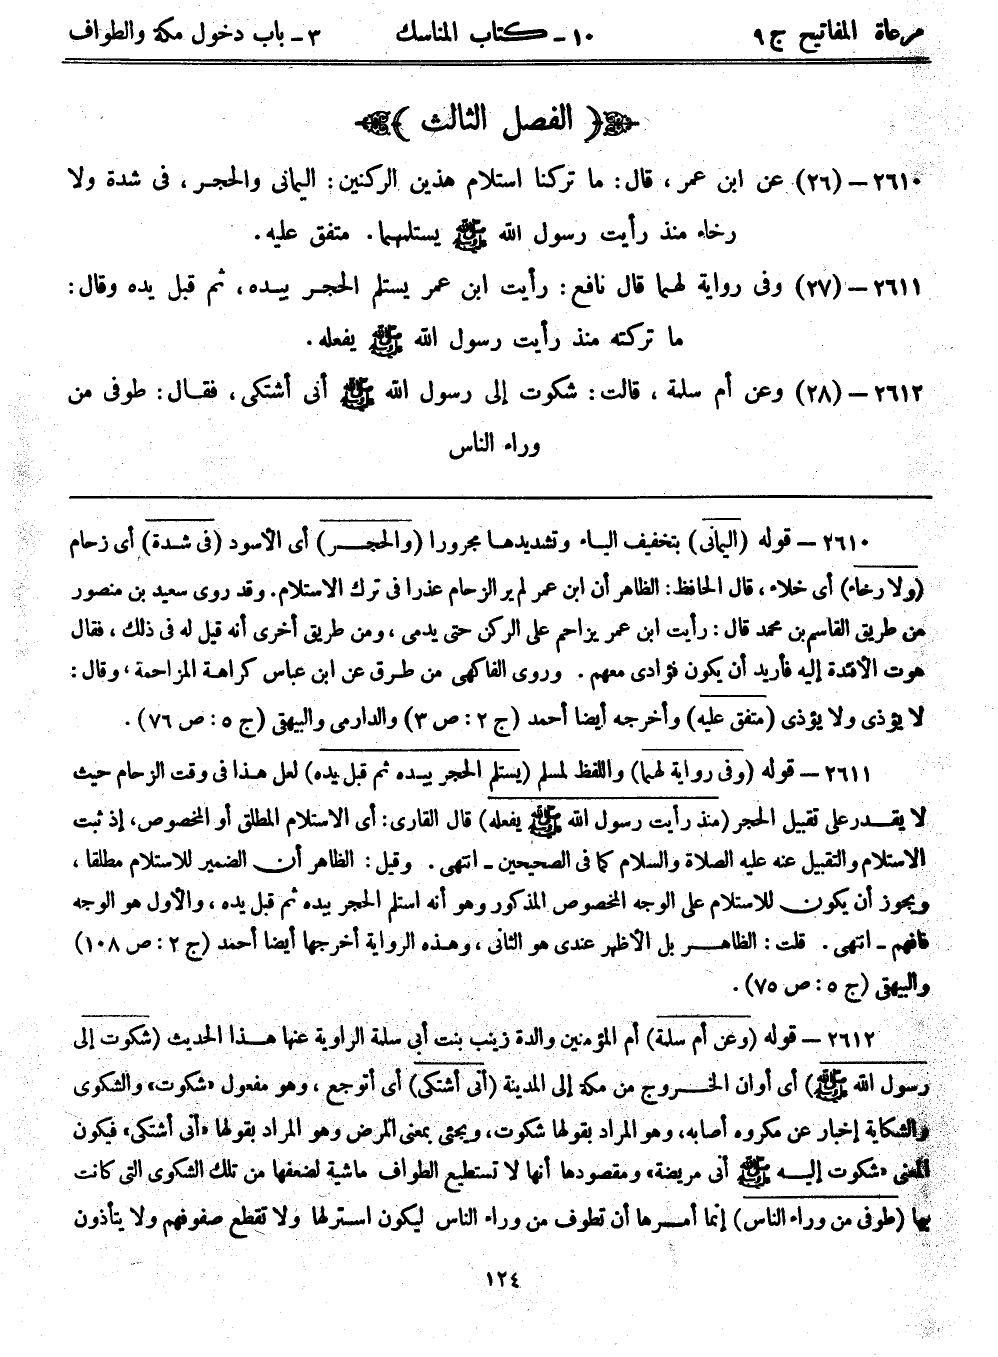 مرعاة المفاتيح ج ٩ ١٠ - كتاب المناسك ٣ - باب دخول مكة والطواف
﴿ الفصل الثالث ﴾
٢٦١٠ – (٢٦) عن ابن عمر ، قال : ما تركنا استلام هذين الركنين : اليمانى والحجر ، فى شدة ولا
رخاء منذ رأيت رسول الله ﷺ يستلمهما . متفق عليه .
٢٦١١ – (٢٧) وفى رواية لهما قال نافع : رأيت ابن عمر يستلم الحجر بيده ، ثم قبل يده وقال :
ما تركته منذ رأيت رسول الله ﷺ يفعله .
٢٦١٢ – (٢٨) وعن أم سلمة ، قالت : شكوت إلى رسول الله ﷺ أنى أشتكى ، فقال : طوفى من
وراء الناس
٢٦١٠ – قوله (اليمانى) بتخفيف الياء وتشديدها مجرورا (والحجر) أى الأسود (فى شدة) أى زحام
(ولا رخاء) أى خلاء ، قال الحافظ : الظاهر أن ابن عمر لم ير الزحام عذرا فى ترك الاستلام . وقد روى سعيد بن منصور
من طريق القاسم بن محمد قال : رأيت ابن عمر يزاحم على الركن حتى يدمى ، ومن طريق أخرى أنه قيل له فى ذلك ، فقال
هوت الأفئدة إليه فأريد أن يكون فؤادى معهم . وروى الفاكهى من طرق عن ابن عباس كراهة المزاحمة ، وقال :
لا يؤذى ولا يؤذى (متفق عليه) وأخرجه أيضا أحمد (ج ٢ : ص ٣) والدارمى والبيهقى (ج ٥ : ص ٧٦) .
٢٦١١ – قوله (وفى رواية لهما) واللفظ لمسلم (يستلم الحجر بيده ثم قبل يده) لعل هذا فى وقت الزحام حيث
لا يقدر على تقبيل الحجر (منذ رأيت رسول الله ﷺ يفعله) قال القارى : أى الاستلام المطلق أو المخصوص ، إذ ثبت
الاستلام والتقبيل عنه عليه الصلاة والسلام كما فى الصحيحين - انتهى . وقيل : الظاهر أن الضمير للاستلام مطلقا ،
ويجوز أن يكون للاستلام على الوجه المخصوص المذكور وهو أنه استلم الحجر بيده ثم قبل يده ، والأول هو الوجه
فافهم - انتهى . قلت : الظاهر بل الأظهر عندى هو الثانى ، وهذه الرواية أخرجها أيضا أحمد (ج ٢ : ص ١٠٨)
والبيهقى (ج ٥ : ص ٧٥) .
٢٦١٢ – قوله (وعن أم سلمة) أم المؤمنين والدة زينب بنت أبى سلمة الراوية عنها هذا الحديث (شكوت إلى
رسول الله ﷺ) أى أوان الخروج من مكة إلى المدينة (أنى أشتكى) أى أتوجع ، وهو مفعول «شكوت» والشكوى
والشكاية إخبار عن مكروه أصابه ، وهو المراد بقولها شكوت ، ويجئى بمعنى المرض وهو المراد بقولها «أنى أشتكى» فيكون
المعنى «شكوت إليه ﷺ أنى مريضة» ومقصودها أنها لا تستطيع الطواف ماشية لضعفها من تلك الشكوى التى كانت
بها (طوفى من وراء الناس) إنما أمرها أن تطوف من وراء الناس ليكون استر لها ولا تقطع صفوفهم ولا يتأذون
١٢٤